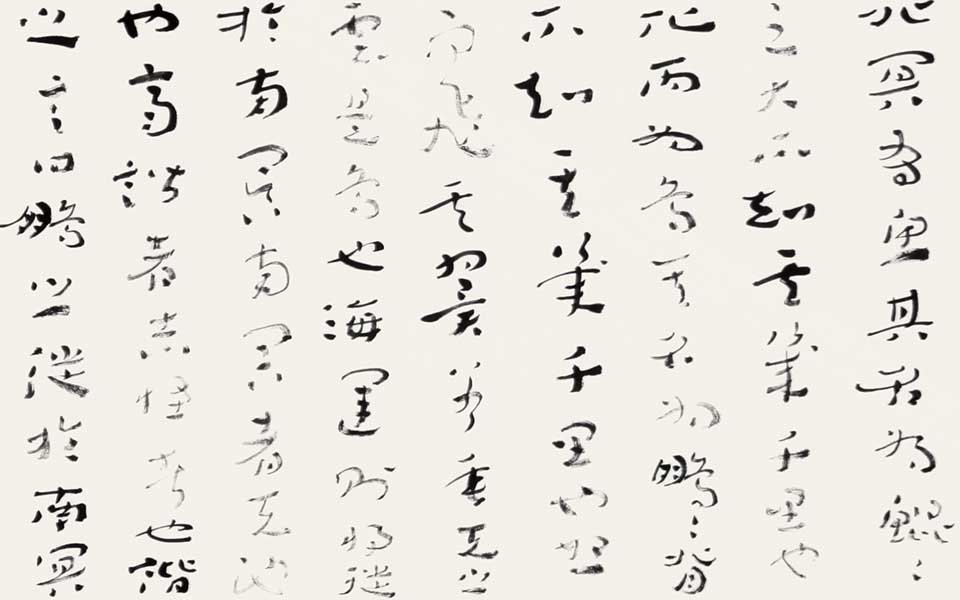 北冥有魚其名為鯤〻
之大不知其幾千里也
化而為鳥其名為鵬〻背
不知其幾千里也怒
而飛其翼若垂天之
雲是鳥也海運則將徙
於南冥南冥者天池
也齊諧者志怪者也諧
之言曰鵬之徙於南冥